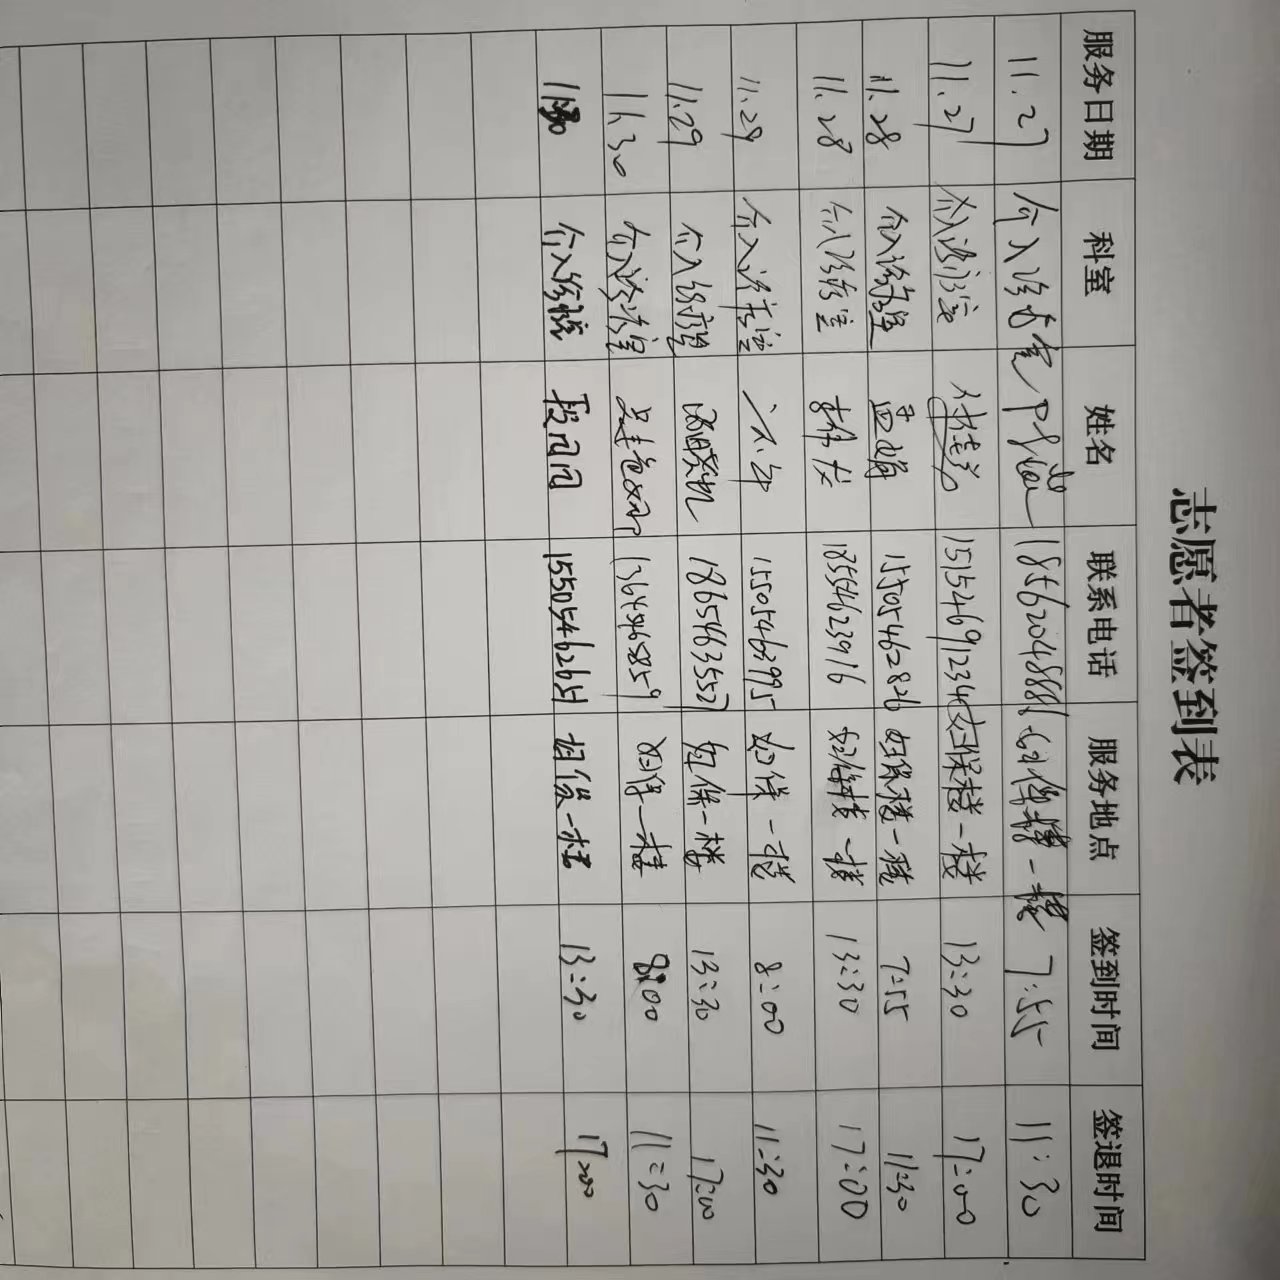 志愿者签到表
服务日期 科室 姓名 联系电话 服务地点 签到时间 签退时间
11.27 介入诊疗室 18562048881 妇保楼一楼 7:55 11:30
11.27 介入诊疗室 15154691234 妇保楼一楼 13:30 17:00
11.28 介入诊疗室 孟娟 15505462826 妇保楼一楼 7:55 11:30
11.28 介入诊疗室 18554623916 妇保楼一楼 13:30 17:00
11.29 介入诊疗室 15505463995 妇保一楼 8:00 11:30
11.29 介入诊疗室 18654635527 妇保一楼 13:30 17:00
11.30 介入诊疗室 13645465859 妇保一楼 8:00 11:30
11.30 介入诊疗室 段闪闪 15505462651 妇保一楼 13:30 17:00